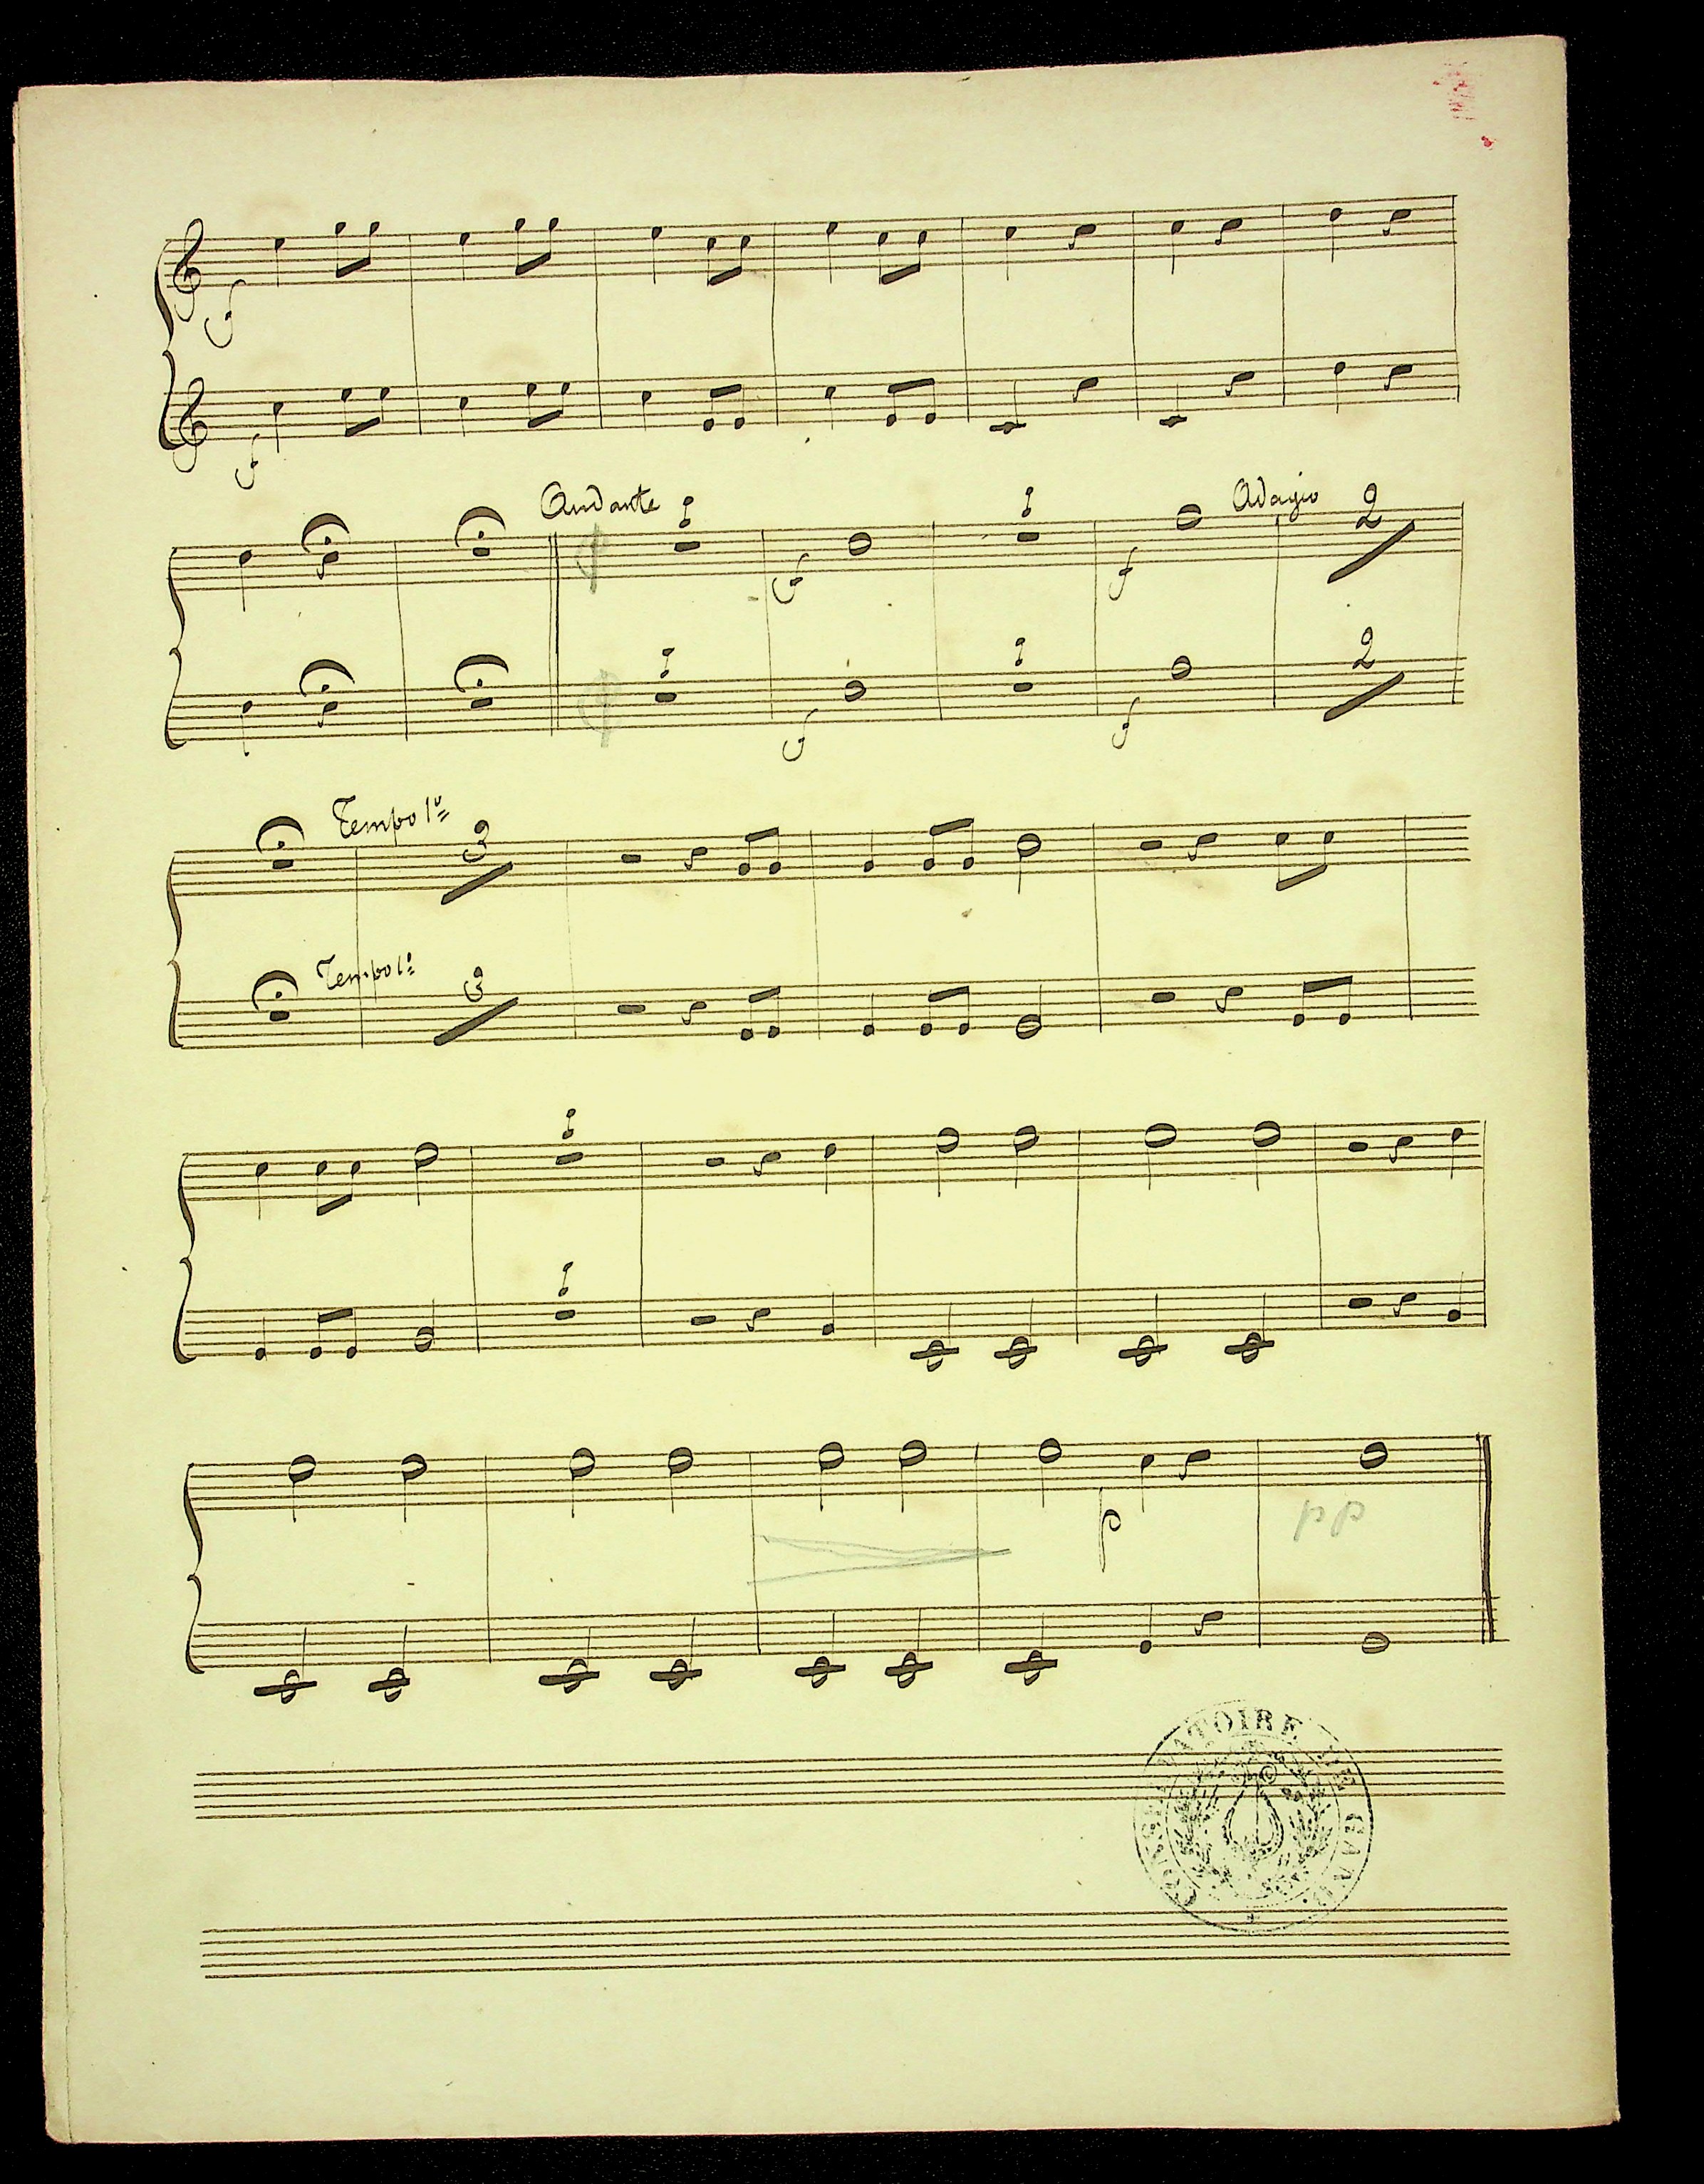 f
f
Andante 1 Adagio 2
f f
1 1 2
f f
Tempo 1º 3
Tempo 1º 3
1
1
p pp
CONSERVATOIRE DE GAND